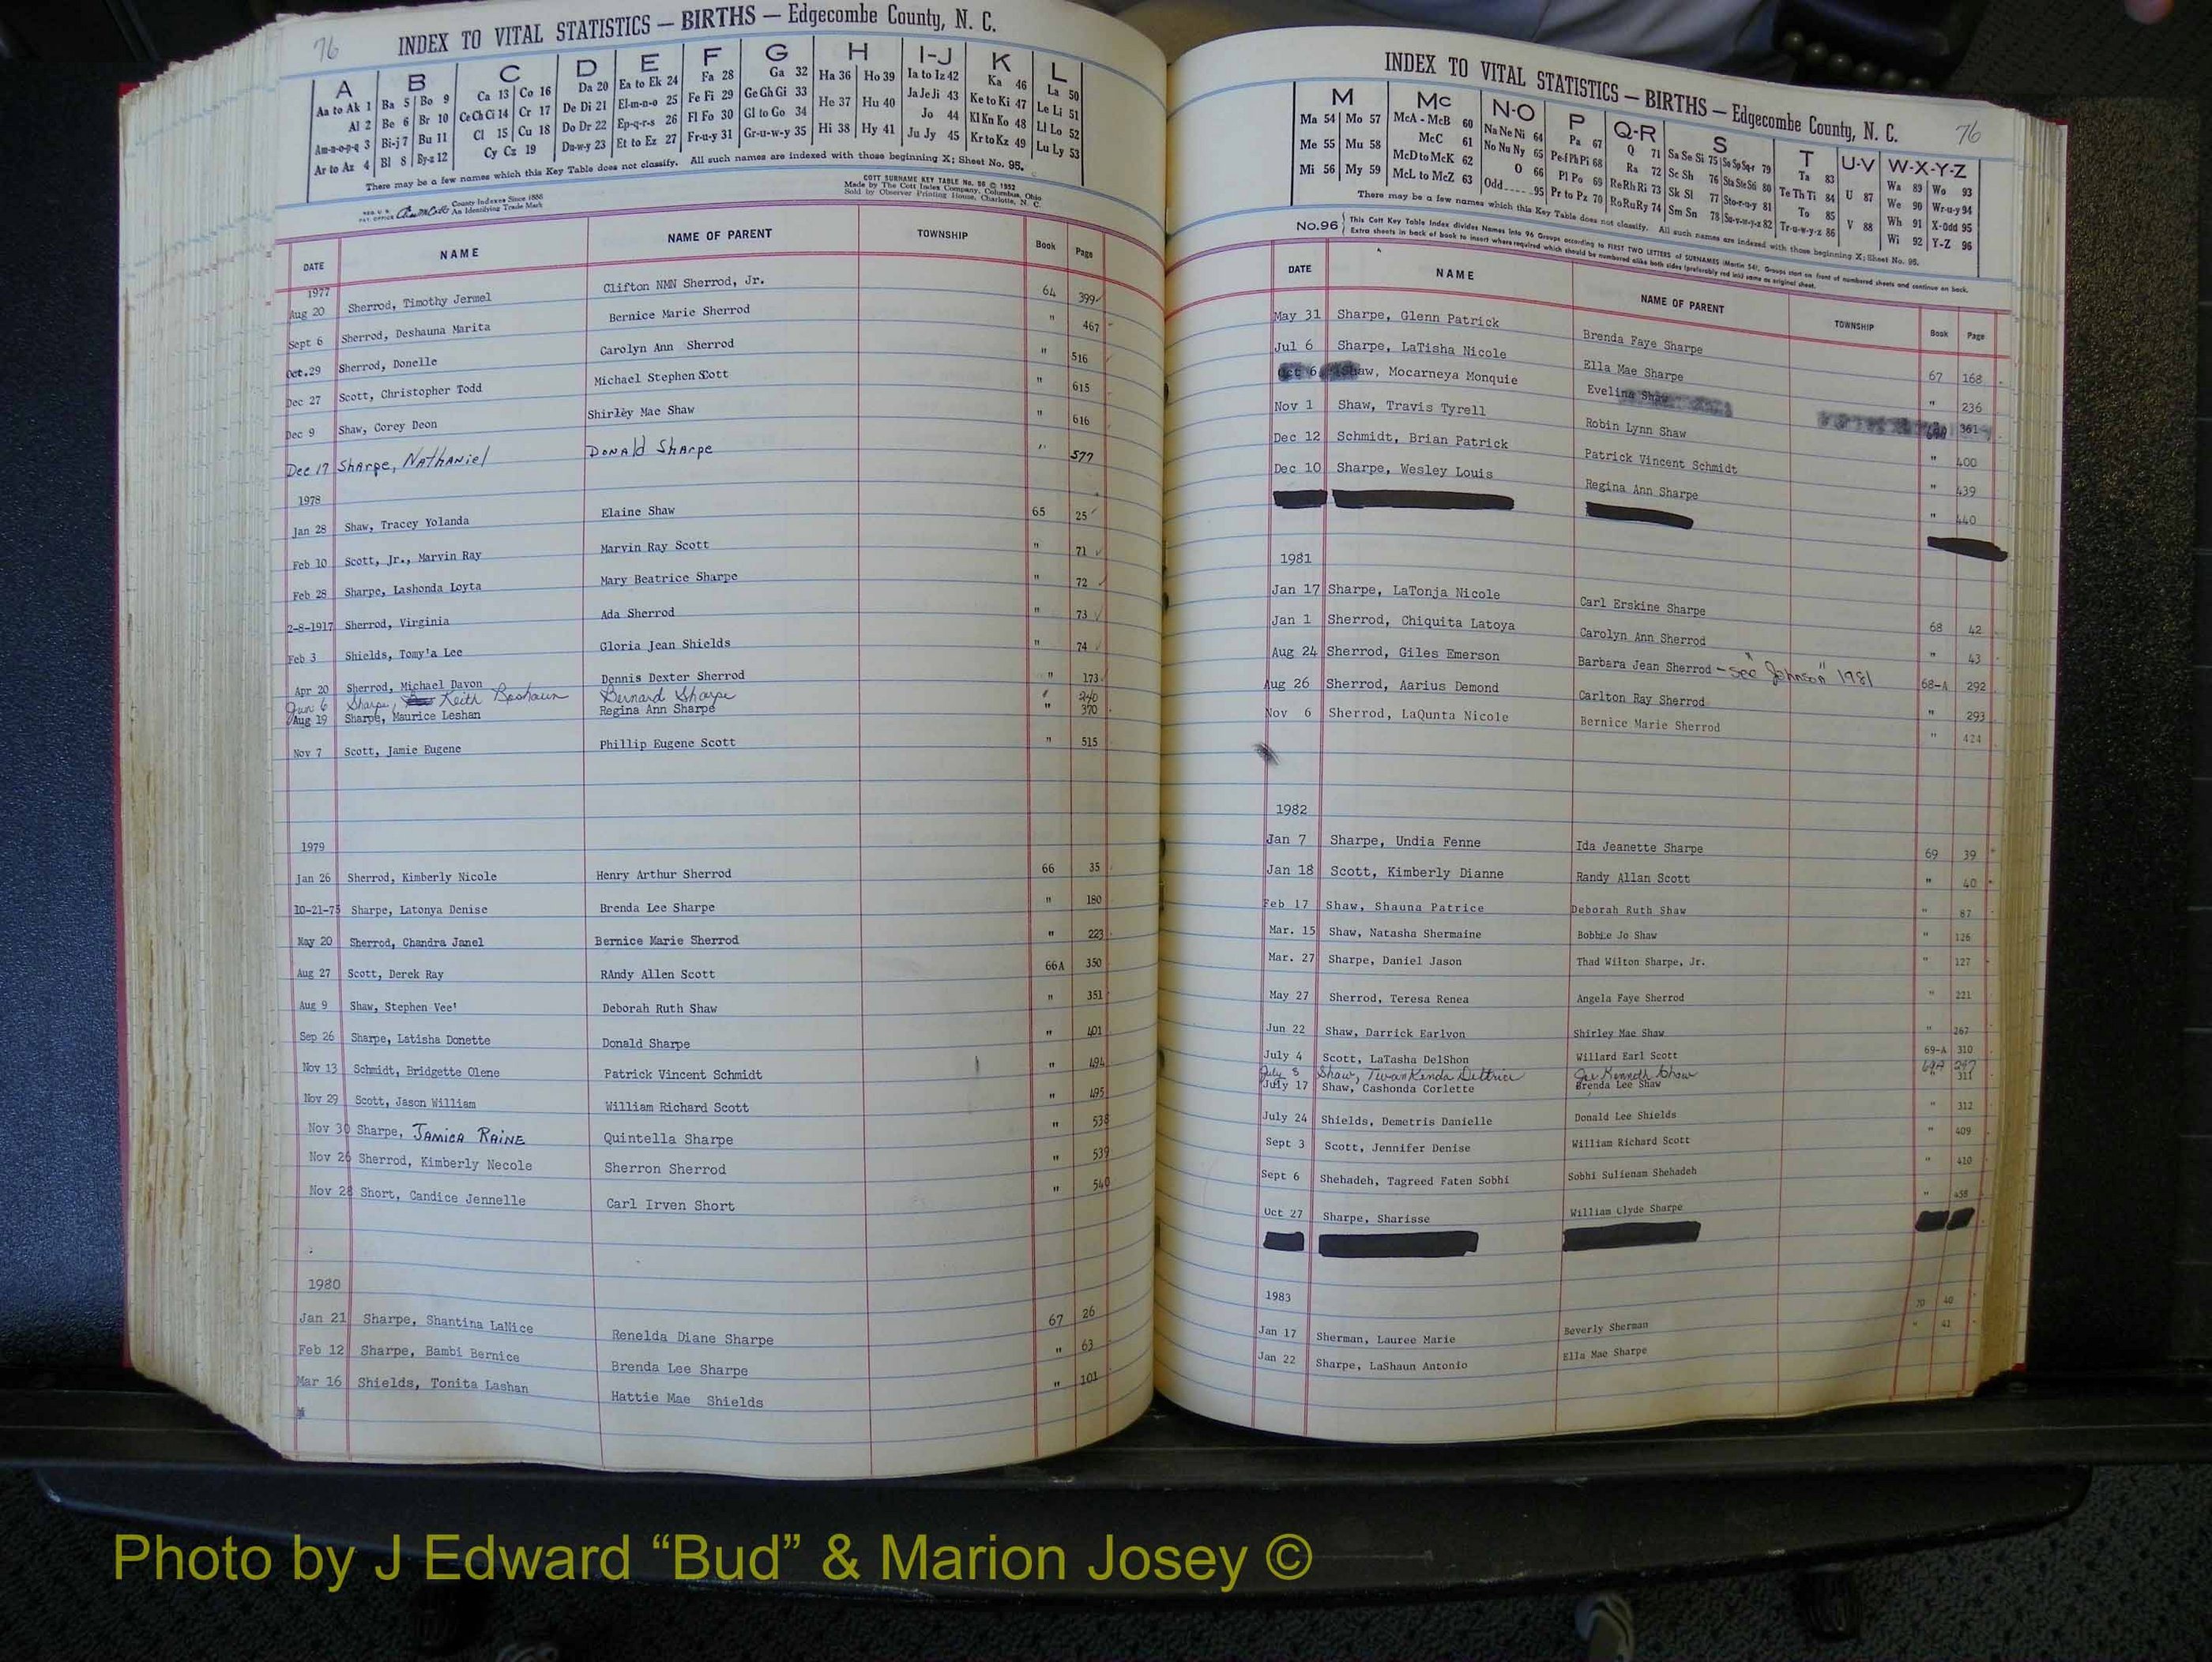 76
INDEX TO VITAL STATISTICS — BIRTHS — Edgecombe County, N. C.
A B C D E F G H I-J K L
Aa to Ak 1 Ba 5 Bo 9 Ca 13 Co 16 Da 20 Ea to Ek 24 Fa 28 Ga 32 Ha 36 Ho 39 Ia to Iz 42 Ka 46 La 50
Al 2 Be 6 Br 10 Ce Ch Ci 14 Cr 17 De Di 21 El-m-n-o 25 Fe Fi 29 Ge Gh Gi 33 He 37 Hu 40 Ja Je Ji 43 Ke to Ki 47 Le Li 51
Am-n-o-p-q 3 Bi-j 7 Bu 11 Cl 15 Cu 18 Do Dr 22 Ep-q-r-s 26 Fl Fo 30 Gl to Go 34 Hi 38 Hy 41 Jo 44 Kl Kn Ko 48 Ll Lo 52
Ar to Az 4 Bl 8 By-z 12 Cy Cz 19 Du-w-y 23 Et to Ez 27 Fr-u-y 31 Gr-u-w-y 35 Ju Jy 45 Kr to Kz 49 Lu Ly 53
There may be a few names which this Key Table does not classify. All such names are indexed with those beginning X; Sheet No. 95.
REG. U. S. PAT. OFFICE County Indexes Since 1888 An Identifying Trade Mark
COTT SURNAME KEY TABLE No. 96 © 1952
Made by The Cott Index Company, Columbus, Ohio
Sold by Observer Printing House, Charlotte, N. C.
DATE NAME NAME OF PARENT TOWNSHIP Book Page
1977
Aug 20 Sherrod, Timothy Jermel Clifton NMN Sherrod, Jr. 64 399
Sept 6 Sherrod, Deshauna Marita Bernice Marie Sherrod " 467
Oct.29 Sherrod, Donelle Carolyn Ann Sherrod " 516
Dec 27 Scott, Christopher Todd Michael Stephen Scott " 615
Dec 9 Shaw, Corey Deon Shirley Mae Shaw " 616
Dec 17 Sharpe, Nathaniel Donald Sharpe " 577
1978
Jan 28 Shaw, Tracey Yolanda Elaine Shaw 65 25
Feb 10 Scott, Jr., Marvin Ray Marvin Ray Scott " 71
Feb 28 Sharpe, Lashonda Loyta Mary Beatrice Sharpe " 72
2-8-1917 Sherrod, Virginia Ada Sherrod " 73
Feb 3 Shields, Tomy'a Lee Gloria Jean Shields " 74
Apr 20 Sherrod, Michael Davon Dennis Dexter Sherrod " 173
Jun 6 Sharpe, Keith Bernard Sharpe " 240
Aug 19 Sharpe, Maurice Leshan Regina Ann Sharpe " 370
Nov 7 Scott, Jamie Eugene Phillip Eugene Scott " 515
1979
Jan 26 Sherrod, Kimberly Nicole Henry Arthur Sherrod 66 35
10-21-75 Sharpe, Latonya Denise Brenda Lee Sharpe " 180
May 20 Sherrod, Chandra Janel Bernice Marie Sherrod " 223
Aug 27 Scott, Derek Ray RAndy Allen Scott 66A 350
Aug 9 Shaw, Stephen Vee' Deborah Ruth Shaw " 351
Sep 26 Sharpe, Latisha Donette Donald Sharpe " 401
Nov 13 Schmidt, Bridgette Olene Patrick Vincent Schmidt " 494
Nov 29 Scott, Jason William William Richard Scott " 495
Nov 30 Sharpe, JAMICA RAINE Quintella Sharpe " 538
Nov 26 Sherrod, Kimberly Necole Sherron Sherrod " 539
Nov 28 Short, Candice Jennelle Carl Irven Short " 540
1980
Jan 21 Sharpe, Shantina LaNice Renelda Diane Sharpe 67 26
Feb 12 Sharpe, Bambi Bernice Brenda Lee Sharpe " 63
Mar 16 Shields, Tonita Lashan Hattie Mae Shields " 101
INDEX TO VITAL STATISTICS — BIRTHS — Edgecombe County, N. C.
76
M Mc N-O P Q-R S T U-V W-X-Y-Z
Ma 54 Mo 57 McA - McB 60 Na Ne Ni 64 Pa 67 Q 71 Sa Se Si 75 So Sp Sq-r 79 Ta 83 U 87 Wa 89 Wo 93
Me 55 Mu 58 McC 61 No Nu Ny 65 Pe-f Ph Pi 68 Ra 72 Sc Sh 76 Sta Ste St 80 Te Th Ti 84 V 88 We 90 Wr-u-y 94
Mi 56 My 59 McD to McK 62 O 66 Pl Po 69 Re Rh Ri 73 Sk Sl 77 Sto-r-u-y 81 To 85 Wh 91 X-Odd 95
McL to McZ 63 Odd 95 Pr to Pz 70 Ro Ru Ry 74 Sm Sn 78 Su-v-w-y-z 82 Tr-u-w-y-z 86 Wi 92 Y-Z 96
There may be a few names which this Key Table does not classify. All such names are indexed with those beginning X; Sheet No. 95.
No.96 This Cott Key Table Index divides Names into 96 Groups according to FIRST TWO LETTERS of SURNAMES (Martin 54). Groups start on front of numbered sheets and continue on back.
Extra sheets in back of book to insert where required which should be numbered alike both sides (preferably red ink) same as original sheet.
DATE NAME NAME OF PARENT TOWNSHIP Book Page
May 31 Sharpe, Glenn Patrick Brenda Faye Sharpe 67 168
Jul 6 Sharpe, LaTisha Nicole Ella Mae Sharpe " 236
Oct 6 Shaw, Mocarneya Monquie Eveline Shaw 361
Nov 1 Shaw, Travis Tyrell Robin Lynn Shaw " 400
Dec 12 Schmidt, Brian Patrick Patrick Vincent Schmidt " 439
Dec 10 Sharpe, Wesley Louis Regina Ann Sharpe " 440
1981
Jan 17 Sharpe, LaTonja Nicole Carl Erskine Sharpe 68 42
Jan 1 Sherrod, Chiquita Latoya Carolyn Ann Sherrod " 43
Aug 24 Sherrod, Giles Emerson Barbara Jean Sherrod - see "Johnson" 1981 68-A 292
Aug 26 Sherrod, Aarius Demond Carlton Ray Sherrod " 293
Nov 6 Sherrod, LaQunta Nicole Bernice Marie Sherrod " 424
1982
Jan 7 Sharpe, Undia Fenne Ida Jeanette Sharpe 69 39
Jan 18 Scott, Kimberly Dianne Randy Allan Scott " 40
Feb 17 Shaw, Shauna Patrice Deborah Ruth Shaw " 87
Mar. 15 Shaw, Natasha Shermaine Bobbie Jo Shaw " 126
Mar. 27 Sharpe, Daniel Jason Thad Wilton Sharpe, Jr. " 127
May 27 Sherrod, Teresa Renea Angela Faye Sherrod " 221
Jun 22 Shaw, Darrick Earlvon Shirley Mae Shaw " 267
July 4 Scott, LaTasha DelShon Willard Earl Scott 69-A 310
July 8 Shaw, TwanKenda Dettrice Joe Kenneth Shaw 69A 297
July 17 Shaw, Cashonda Corlette Brenda Lee Shaw " 311
July 24 Shields, Demetris Danielle Donald Lee Shields " 312
Sept 3 Scott, Jennifer Denise William Richard Scott " 409
Sept 6 Shehadeh, Tagreed Faten Sobhi Sobhi Sulienam Shehadeh " 410
Oct 27 Sharpe, Sharisse William Clyde Sharpe " 458
1983
Jan 17 Sherman, Lauree Marie Beverly Sherman 70 40
Jan 22 Sharpe, LaShaun Antonio Ella Mae Sharpe " 41
Photo by J Edward “Bud” & Marion Josey ©